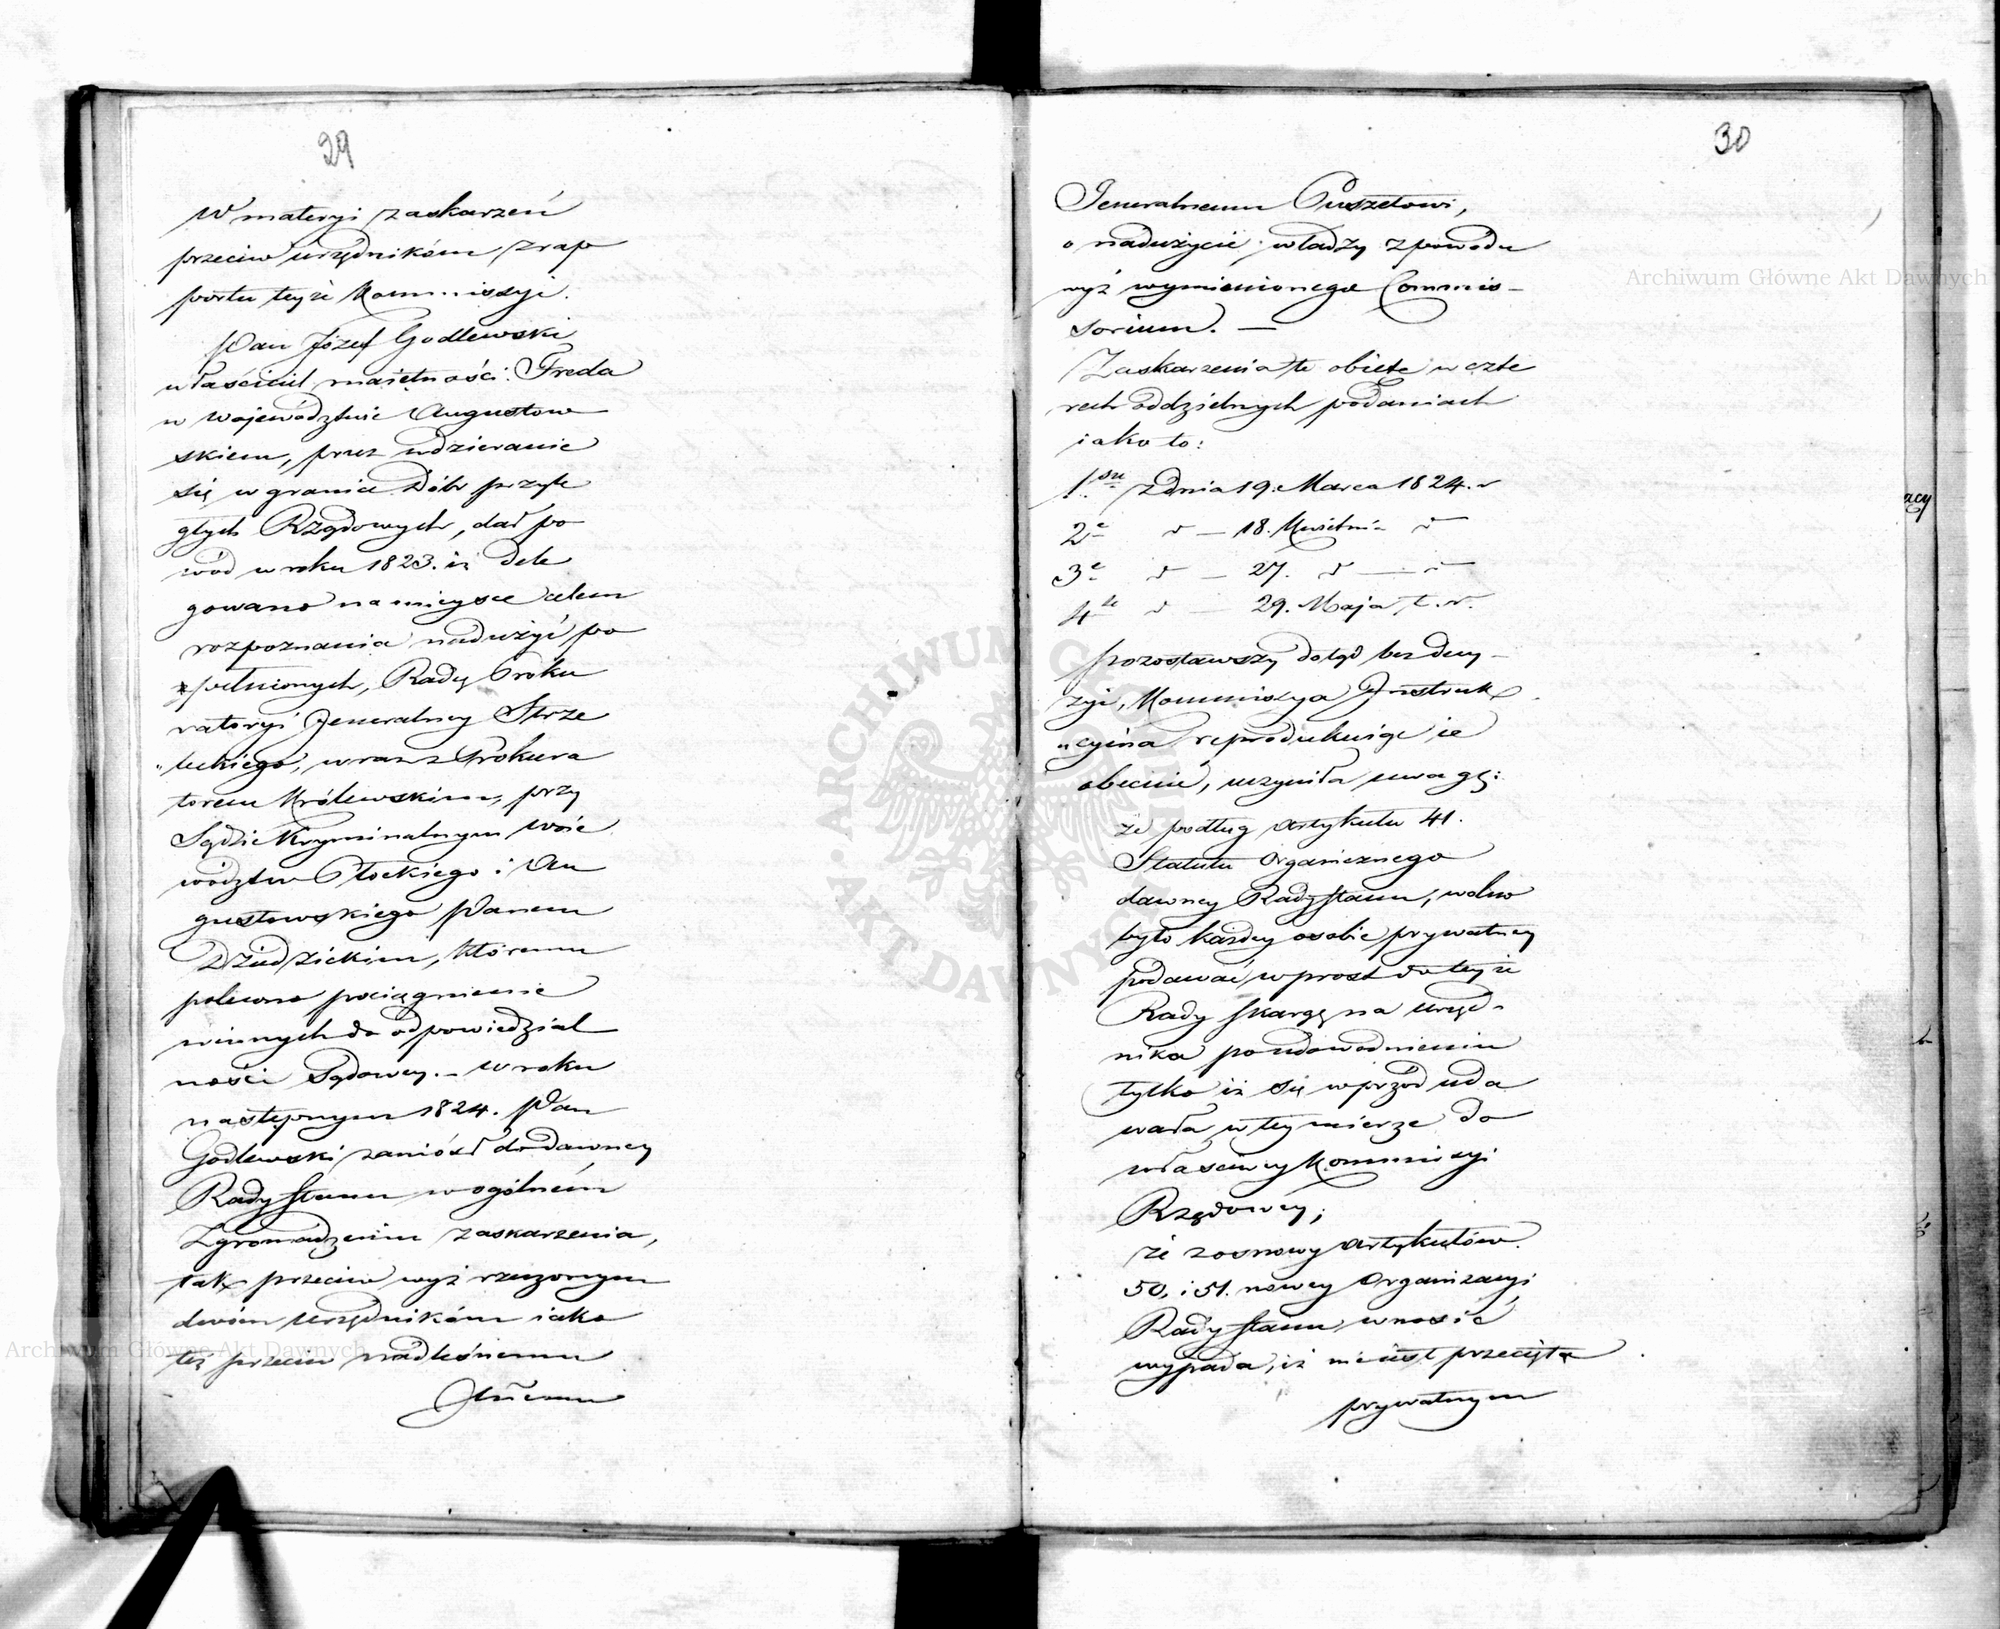 29
W materyi zaskarzeń
przeciw urzędnikóm z rap
portu teyże Kommissyi.
Pan Józef Godlewski
właściciel maiętności Freda
w Wojewódzkwie Augustow
skiem, przez wdzieranie
się w granice Dóbr przyle
głych Rządowych, dał po
wód w roku 1823. iż dele
gowano na mieysce celem
rozpoznania nadużyć po
pełnionych, Radcę Proku
ratoryi Jeneralney Strze
leckiego, wraz z Prokura
torem Królewskim, przy
Sądzie Kryminalnym Woie
wództw Płockiego i Au
gustowskiego Panem
któremu
polecono pociągnienie
winnych do odpowiedzial
ności Sądowey. – W roku
następnym 1824. Pan
Godlewski zaniósł do dawney
Rady Stanu w ogólném
Zgromadzeniu zaskarzenia,
tak przeciw wyż rzeczonym
dwóm urzędnikóm iako
też przeciw nadleśnemu
30
Jeneralnemu Puszetowi,
o nadużycie władzy z powodu
wyż wymienionego Commis–
sorium. —
Zaskarzenia te obięte w czte
rech oddzielnych podaniach
iako to:
z dnia 19. Marca 1824. r
2e d – 18. Kwietnia d
3e d – 27. d — d
4te d — 29. Maja t. r.
pozostawszy dotąd bez decy–
zyi, Kommissya Instruk
cyina reprodukuiąc ie
obecnie, uczyniła uwagę:
że podług Artykułu 41.
Statutu Organicznego
dawney Rady Stanu, wolno
było każdey osobie prywatney
podawać wprost do teyże
Rady skargę na urzęd–
nika po udowodnieniu
tylko iż się wprzód uda
wała w tey mierze do
właściwey Kommissyi
Rządowey;
że z osnowy Artykułów
50. i 51. nowey Organizacyi
Rady Stanu wnosić
wypada, iż nie iest przecięta
prywatnym
Archiwum Główne Akt Dawnych
Archiwum Główne Akt Dawnych